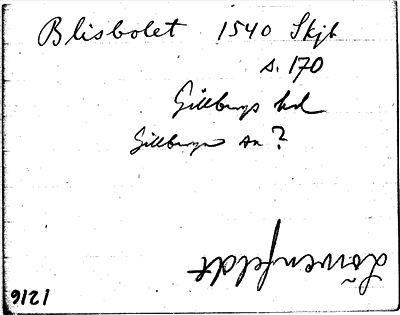 Blisbolet 1540 Skjb
s. 170
Gillbergs hd
Gillberga sn ?
Löwenfeldt
9121